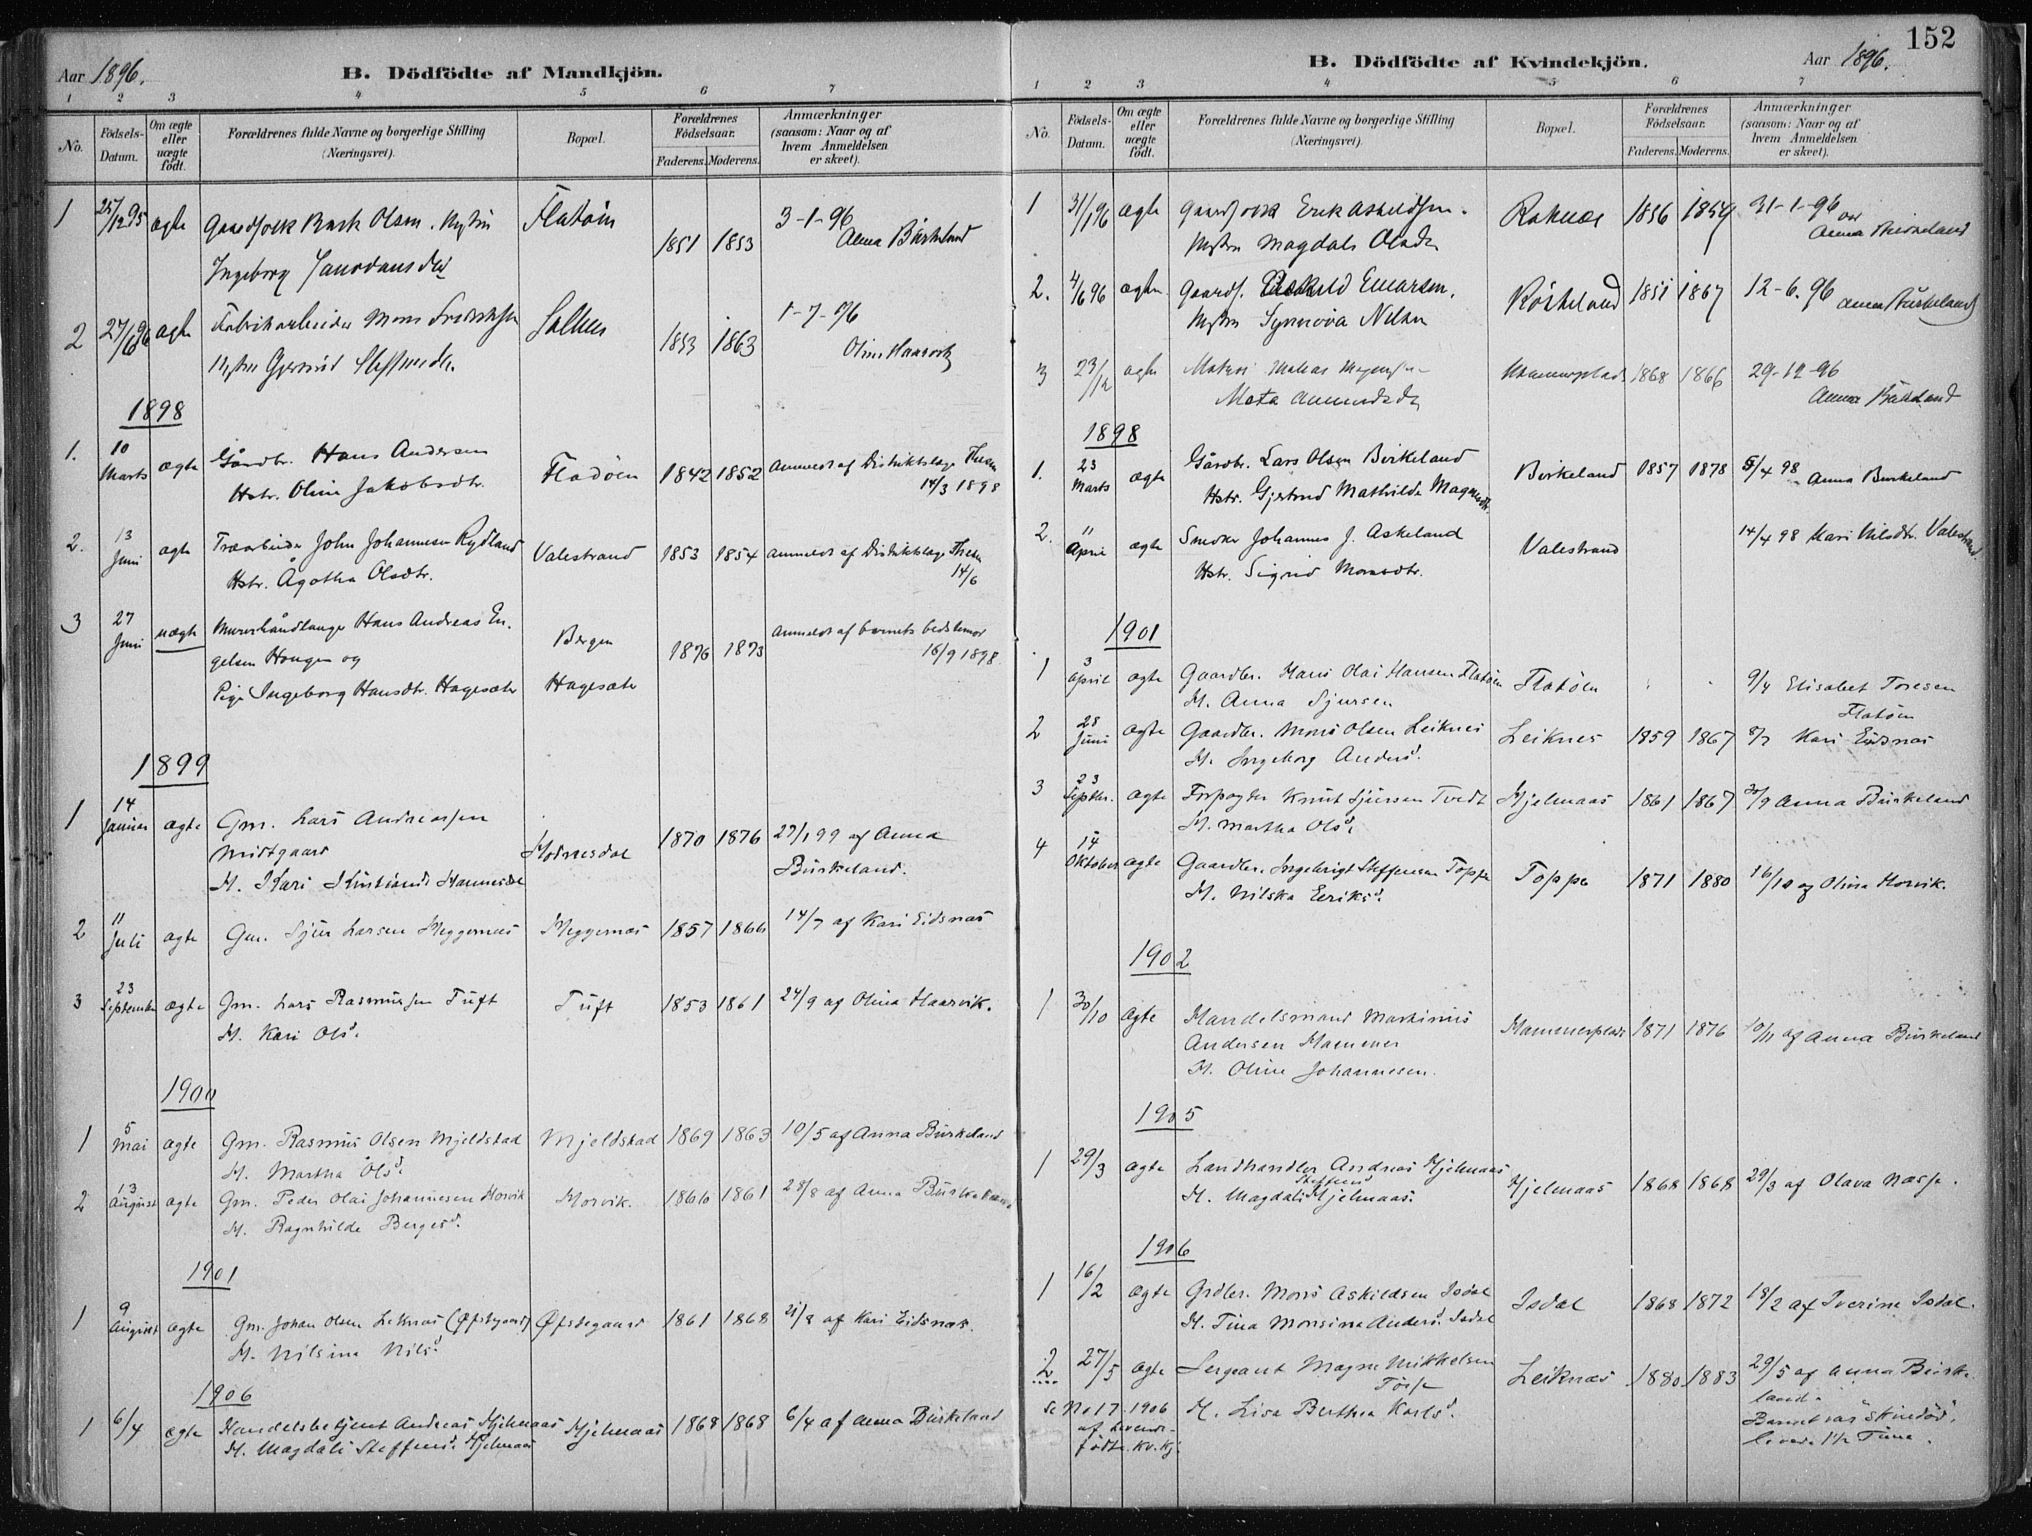 152
Aar 1896.
B. Dödfödte af Mandkjön.
1 2 3 4 5 6 7
No.
Födsels-Datum.
Om ægte eller uægte födt.
Forældrenes fulde Navne og borgerlige Stilling
(Næringsvei).
Bopæl.
Forældrenes Födselsaar.
Faderens. Moderens.
Anmærkninger
(saasom: Naar og af
hvem Anmeldelsen
er skeet).
1 25/12 95 ægte Gaardfolk Olsen Flatöen 1851 1853 3-1-96
Ingeborg Anna Birkeland
2 27/6 96 ægte Fabrikarbeider Mons 1853 1863 1-7-96
1898
1. 10 Marts ægte Gårdbr. Hans Andersen Fladöen 1842 1852 anmeldt af Distriktslæge Thesen
Hstr. Oline Jakobsdtr. 14/3 1898
2. 13 Juni ægte Træarbeider John Johannesen Rydland Valestrand 1853 1854 anmeldt af Distriktslæge Thesen
Hstr. Ågotha Olsdtr. 14/6
3 27 Juni uægte Murerhåndlanger Hans Andreas En- Bergen 1876 1873 anmeldt af barnets bedstemor
gelsen Hougen og 16/9 1898.
Pige Ingeborg Hansdtr. Hagesæter Hagesæter
1899
1 14 Januar ægte Gm. Lars Andreassen 1870 1876 27/1 99 af Anna
Midtgaard Birkeland.
H. Kari
2 11 Juli ægte Gm. Sjur Larsen Meggernæs Meggernæs 1857 1866 14/7 af Kari Eidsnæs
3 23 September ægte Gm. Lars Rasmussen Tuft Tuft 1853 1861 24/9 af Olina Haarvik.
H. Kari Olsd.
1900
1 5 Mai ægte Gm. Rasmus Olsen Mjeldstad Mjeldstad 1869 1863 10/5 af Anna Birkeland
H. Martha Olsd.
2 13 August ægte Gm. Peder Olai Johannesen Horvik Horvik. 1866 1861 28/8 af Anna Birkeland
H. Ragnhilde Bergesd.
1901
1 9 August ægte Gm. Johan Olsen Leknæs (Øfstegaard) Øfstegaard 1861 1868 21/8 af Kari Eidsnæs.
H. Nilsina Nilsd.
1906
1 6/4 ægte Handelsbetjent Andreas Hjelmaas Hjelmaas 1868 1868 6/4 af Anna Birkeland
H. Magdali Steffensd. Hjelmaas
B. Dödfödte af Kvindekjön.
Aar 1896.
1 2 3 4 5 6 7
No.
Födsels-Datum.
Om ægte eller uægte födt.
Forældrenes fulde Navne og borgerlige Stilling
(Næringsvei).
Bopæl.
Forældrenes Födselsaar.
Faderens. Moderens.
Anmærkninger
(saasom: Naar og af
hvem Anmeldelsen
er skeet).
1 31/1 96 ægte Gaardfolk Erik Askeldsen. Roknæs 1856 1854 31-1-96 av
Hustru Magdali Olsdtr Anna Birkeland
2. 4/6 96 ægte Gaardf. Einarsen. 1851 1867 12-6.96 Anna Birkeland
Hustru Synnöva Nilsdtr
3 23/12 ægte Hammerplads 1868 1866 29-12-96
Meta Anna Birkeland
1898
1. 23 Marts ægte Gårdbr. Lars Olsen Birkeland Birkeland 1857 1878 5/4 98 Anna Birkeland
Hstr. Gjertrud Mathilde Magnusdtr.
2. 11 April ægte Snedker Johannes J. Askeland Valestrand 14/4 98 Mari Nilsdtr. Valestrand.
Hstr. Sigrid Monsdtr.
1901
1 3 April ægte Gaardbr. Hans Olai Hansen Flatöen Flatöen 9/4 Elisabet Toresen
H. Anna Sjursen Flatöen
2 28 Juni ægte Gaardbr. Mons Olsen Leiknes Leiknes 1859 1867 8/7 Kari Eidsnæs
H. Ingeborg Andersd.
3 23 Septbr. ægte Forpagter Knut Sjursen Tvedt Hjelmaas 1861 1867 30/9 Anna Birkeland
H. Martha Olsd.
4 14 Oktober ægte Gaardbr. Ingebrigt Steffensen Toppe Toppe 1871 1880 16/10 af Olina Horvik.
H. Nilska Eeriksd.
1902
1 30/10 ægte Handelsmand Martinus Hammerplads 1871 1876 10/11 af Anna Birkeland
Andersen Hammer
H. Oline Johannesen.
1905
1 29/3 ægte Landhandler Andreas Hjelmaas Hjelmaas 1868 1868 29/3 af Olava Næsse.
Steffensd
H. Magdali Hjelmaas.
1906
1 16/2 ægte Grdbr. Mons Askildsen Isdal Isdal 1868 1872 18/2 af Iverine Isdal.
H. Tina Monsina Andersd. Isdal
2 27/5 ægte Sergeant Magne Mikkelsen Leiknæs 1880 1883 29/5 af Anna Birke-
land.
se No 17 1906 H. Lisa Berthea Karlsd. Barnet var skindöd,
af Levende- levede 1½ Time.
födte Kv.kj.